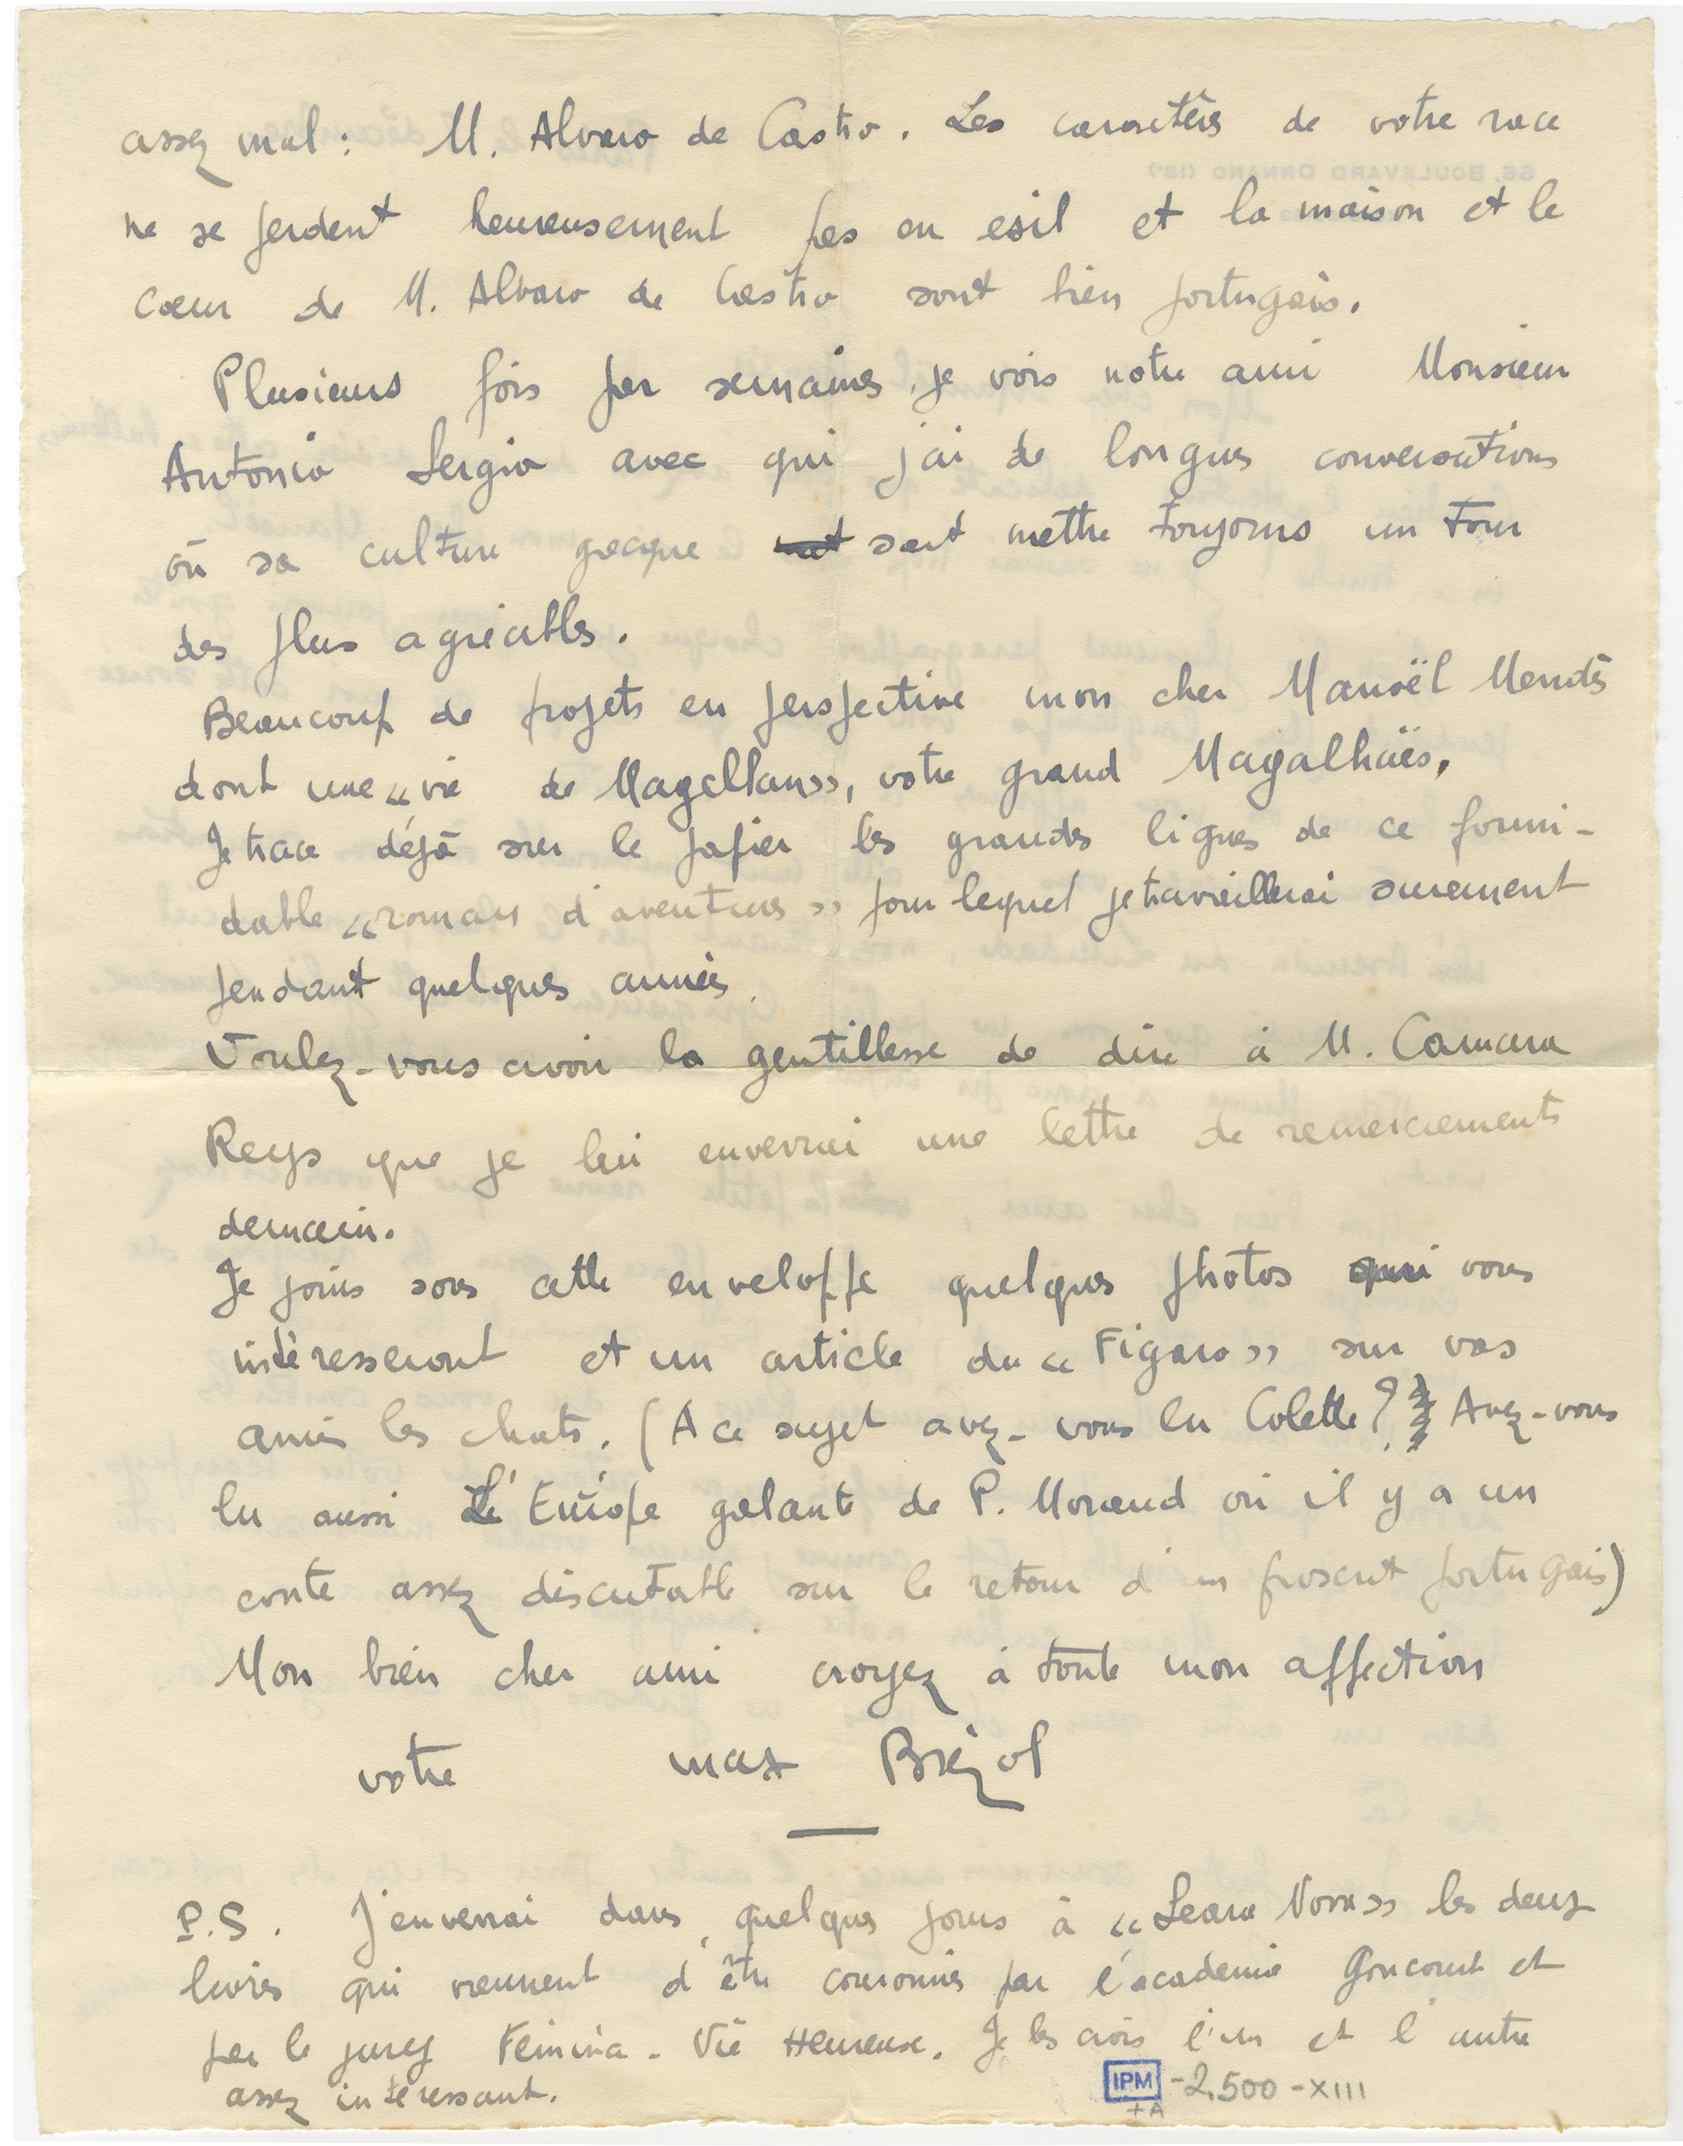 assez mal : M. Alvaro de Castro. Les caractères de votre race
ne se perdent heureusement pas en exil et la maison et le
cœur de M. Alvaro de Castro sont bien portugais.
Plusieurs fois par semaines, je vois notre ami Monsieur
Antonio Sergio avec qui j'ai de longues conversations
où sa culture grecque sait mettre toujours un tour
des plus agréables.
Beaucoup de projets en perspective mon cher Manoël Mendès
dont une « vie de Magellan », votre grand Magalhaës.
Je trace déjà sur le papier les grandes lignes de ce formi-
dable « roman d'aventures » pour lequel je travaillerai surement
pendant quelques années.
Voulez-vous avoir la gentillesse de dire à M. Camara
Reys que je lui enverrai une lettre de remerciements
demain.
Je joins sous cette enveloppe quelques photos qui vous
intéresseront et un article du « Figaro » sur vos
amis les chats. (A ce sujet avez-vous lu Colette ? Avez-vous
lu aussi L'Europe galante de P. Morand où il y a un
conte assez discutable sur le retour d'un proscrit portugais)
Mon bien cher ami croyez à toute mon affection
votre max Brézol
P.S. J'enverrai dans quelques jours à « Seara Nova » les deux
livres qui viennent d'être couronnés par l'academie Goncourt et
par le jury Fémina - Vie Heureuse. Je les crois l'un et l'autre
assez intéressant.
IPM - 2.500 - XIII
+A